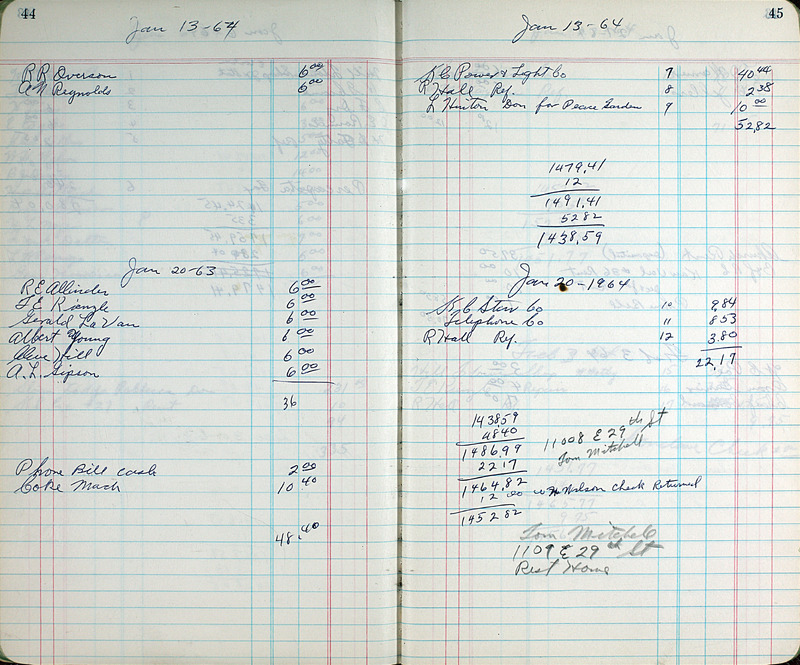 44
Jan 13-64
R R Overson 6 00
A N Reynolds 6 00
Jan 20-63
R E Allinder 6 00
6 00
Gerald LaVan 6 00
Albert Young 6 00
Cleve Hill 6 00
A. L. Gipson 6 00
36
Phone Bill cash 2 00
Coke Mach 10 40
48.40
45
Jan 13-64
K C Power & Light Co 7 40 44
R Hall Ref. 8 2 38
L Hinton Don for Peace Garden 9 10 00
52.82
1479.41
12
1491.41
52 82
1438.59
Jan 20-1964
K C Star Co 10 9.84
Telephone Co 11 8 53
R Hall Ref. 12 3.80
22.17
1438.59
48 40
1486.99
22 17
1464.82
12 00 W H Wilson Check Returned
1452 82
11008 E 29th St
Tom Mitchell
Tom Mitchell
1109 E 29th St
Rest Home